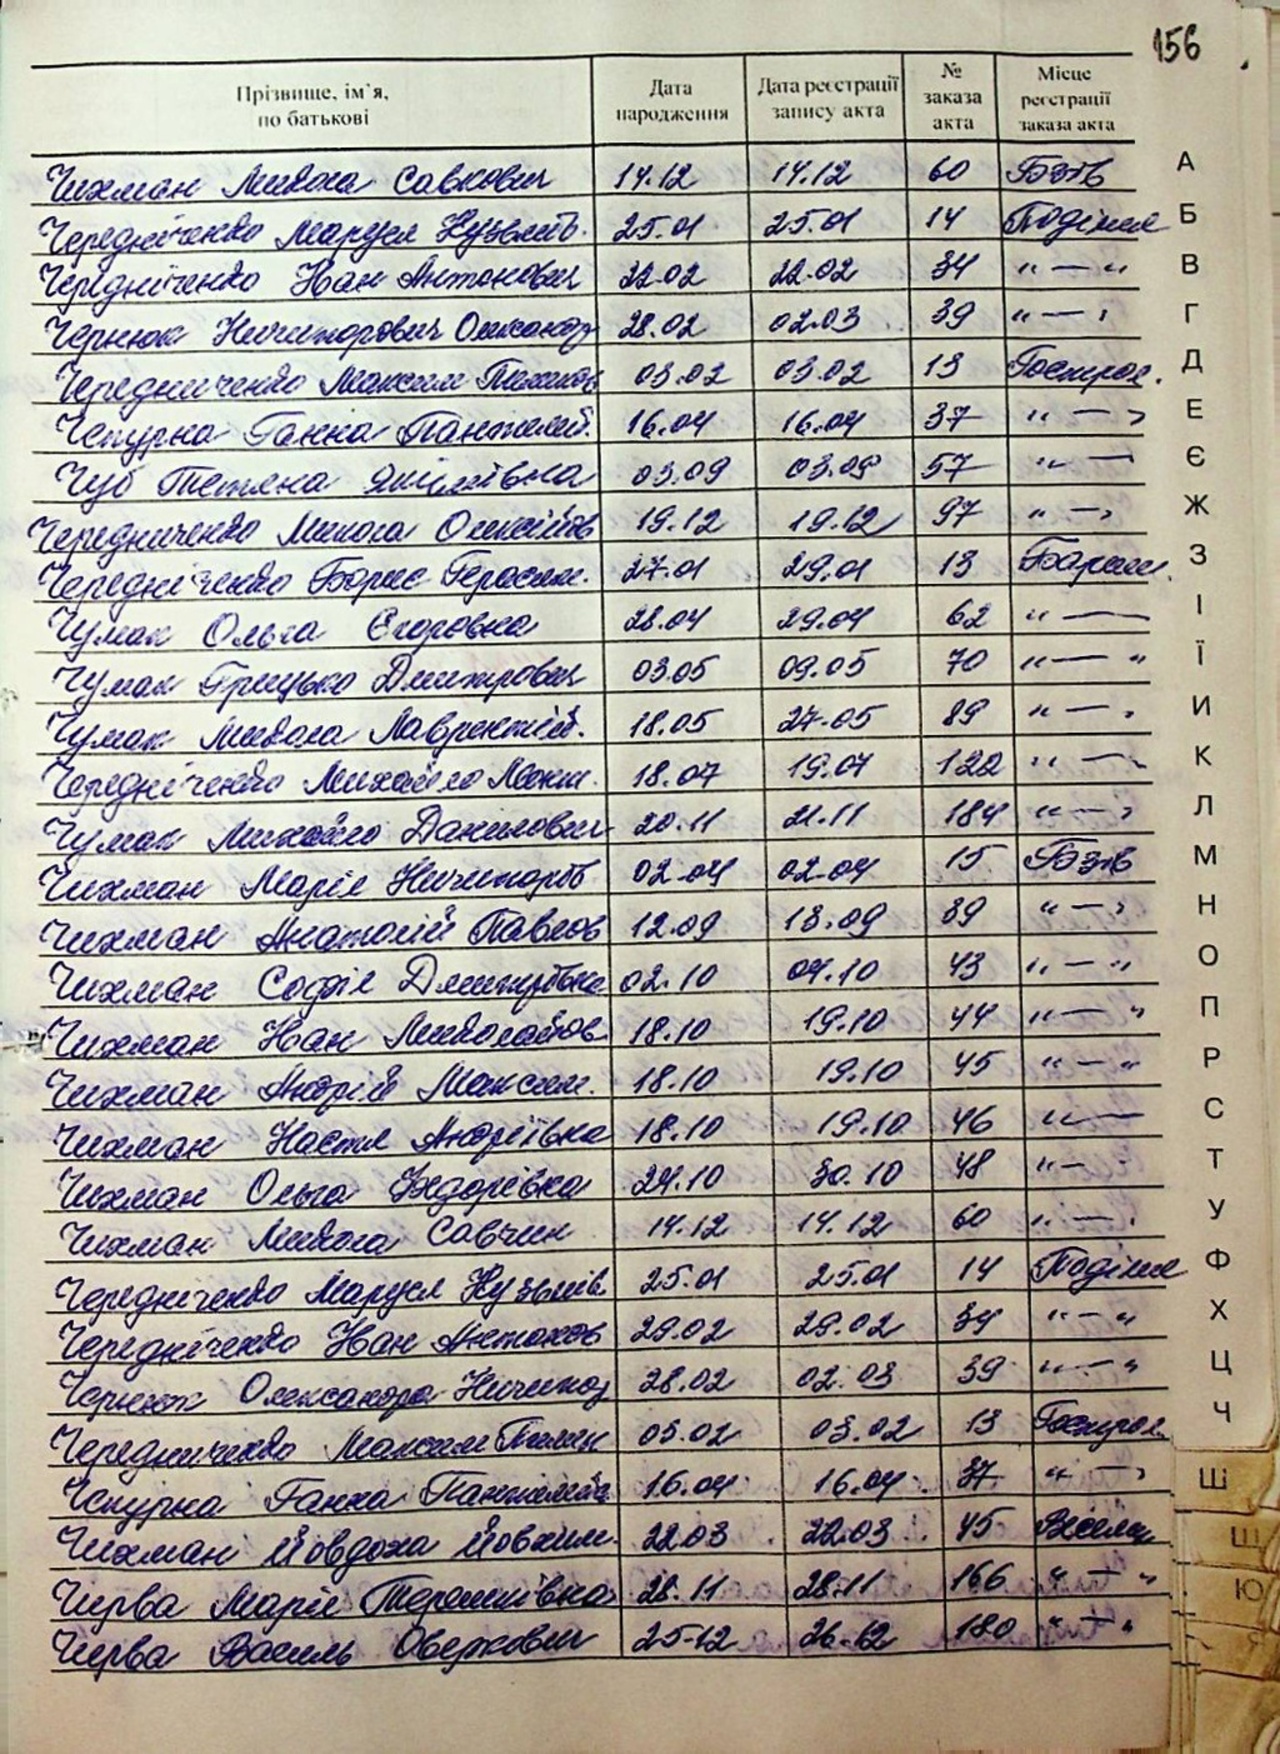 156
Прізвище, ім'я, по батькові Дата народження Дата реєстрації запису акта № заказа акта Місце реєстрації заказа акта
Чихман Микола Савкович 14.12 14.12 60 Бзів
Чередніченко Маруся Кузьмів. 25.01 25.01 14 Поділля
Чередніченко Іван Антонович 22.02 22.02 34 " — "
Чернюк Ничипорович Олександр 28.02 02.03 39 " — "
Чередниченко Максим 03.02 03.02 13 Гострол.
Чепурна Ганна Пантелей. 16.04 16.04 37 " — "
Чуб Тетяна Якимівна 03.09 03.09 57 " —
Чередниченко Микола Олексійов 19.12 19.12 97 " — "
Чередніченко Борис Герасим. 27.01 29.01 13 Бариш.
Чумак Ольга Єгоровна 28.04 29.04 62 " —
Чумак Грицько Дмитрович 03.05 09.05 70 " — "
Чумак Микола Лаврентій. 18.05 27.05 89 " — "
Чередніченко Михайло 18.07 19.07 122 " — "
Чумак Михайло Данилович 20.11 21.11 184 " — "
Чихман Марія Ничипорів 02.04 02.04 15 Бзів
Чихман Анатолій Павлов 12.09 13.09 39 " — "
Чихман Софія Дмитрівна 02.10 04.10 43 " — "
Чихман Іван Миколайов 18.10 19.10 44 " — "
Чихман Андрій Максим. 18.10 19.10 45 " — "
Чихман Настя Андріївна 18.10 19.10 46 " —
Чихман Ольга Федорівна 24.10 30.10 48 " —
Чихман Микола Савчин 14.12 14.12 60 " — "
Чередніченко Маруся Кузьмів 25.01 25.01 14 Поділля
Чередніченко Іван Антонов 29.02 29.02 34 " — "
Чернюк Олександра Ничипор 28.02 02.03 39 " — "
Чередниченко Максим 03.02 03.02 13 Гострол.
Чепурна Ганна Пантелей 16.04 16.04 37 " — "
Чихман Йовдоха Йовхим. 22.03 22.03 45
Чирва Марія Терешківна 28.11 28.11 166 " — "
Чирва Василь Оверкович 25.12 26.12 180 " — "
А
Б
В
Г
Д
Е
Є
Ж
З
І
Ї
И
К
Л
М
Н
О
П
Р
С
Т
У
Ф
Х
Ц
Ч
Ш
Щ
Ю
Я